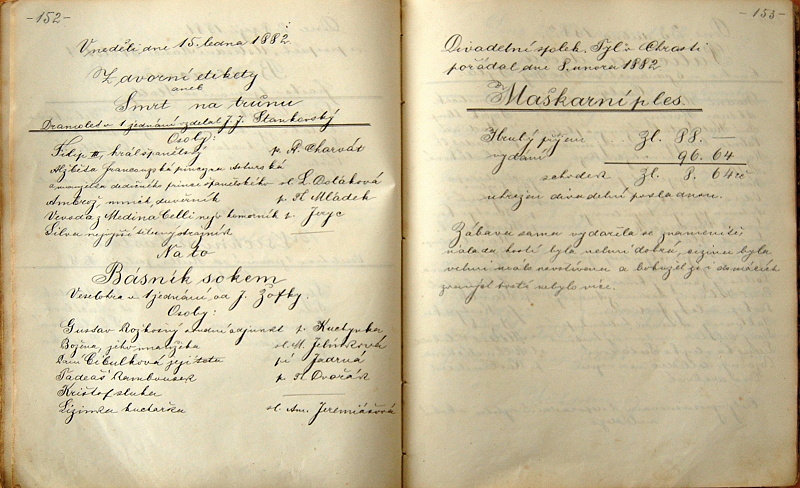 -152-
V neděli dne 15. ledna 1882.
Z dvorní etikety
aneb
Smrt na trůnu
Dramolet v 1 jednání vzdělal J. J. Stankovský
Osoby:
Filip III, král španělský p. A. Charvát
Alžběta Francouzská princezna Asturská
manželka dědičného prince španělského sl. L. Doláková
Ambrož, mnich, důvěrník p. Fl. Mládek
Vevoda z Medina Celli nejv. komorník p.
Silva nejvyšší
Na to
Básník sokem
Veselohra v 1 jednání od J. Žofky.
Osoby:
Gustav soudní adjunkt p. Kuchynka
Božena, jeho manželka sl. M. Jelínková
Paní Cibulková její teta pí Jaderná
Tadeáš Rambousek p. Fl. Dvořák
Krištof sluha
Lizinka kuchařka sl. An. Jeremiášová
-153-
Divadelní spolek "Tyl" v Chrasti
pořádal dne 8. února 1882
Maškarní ples.
Hrubý příjem Zl. 88. —
vydání 96. 64
schodek Zl. 8. 64 kr
uhrazen divadelní pokladnou.
Zábava sama vydařila se znamenitě
nálada hostí byla velmi dobrá, cizinci byla
velmi málo navštívena a bohužel že i domácích
hostů nebylo více.